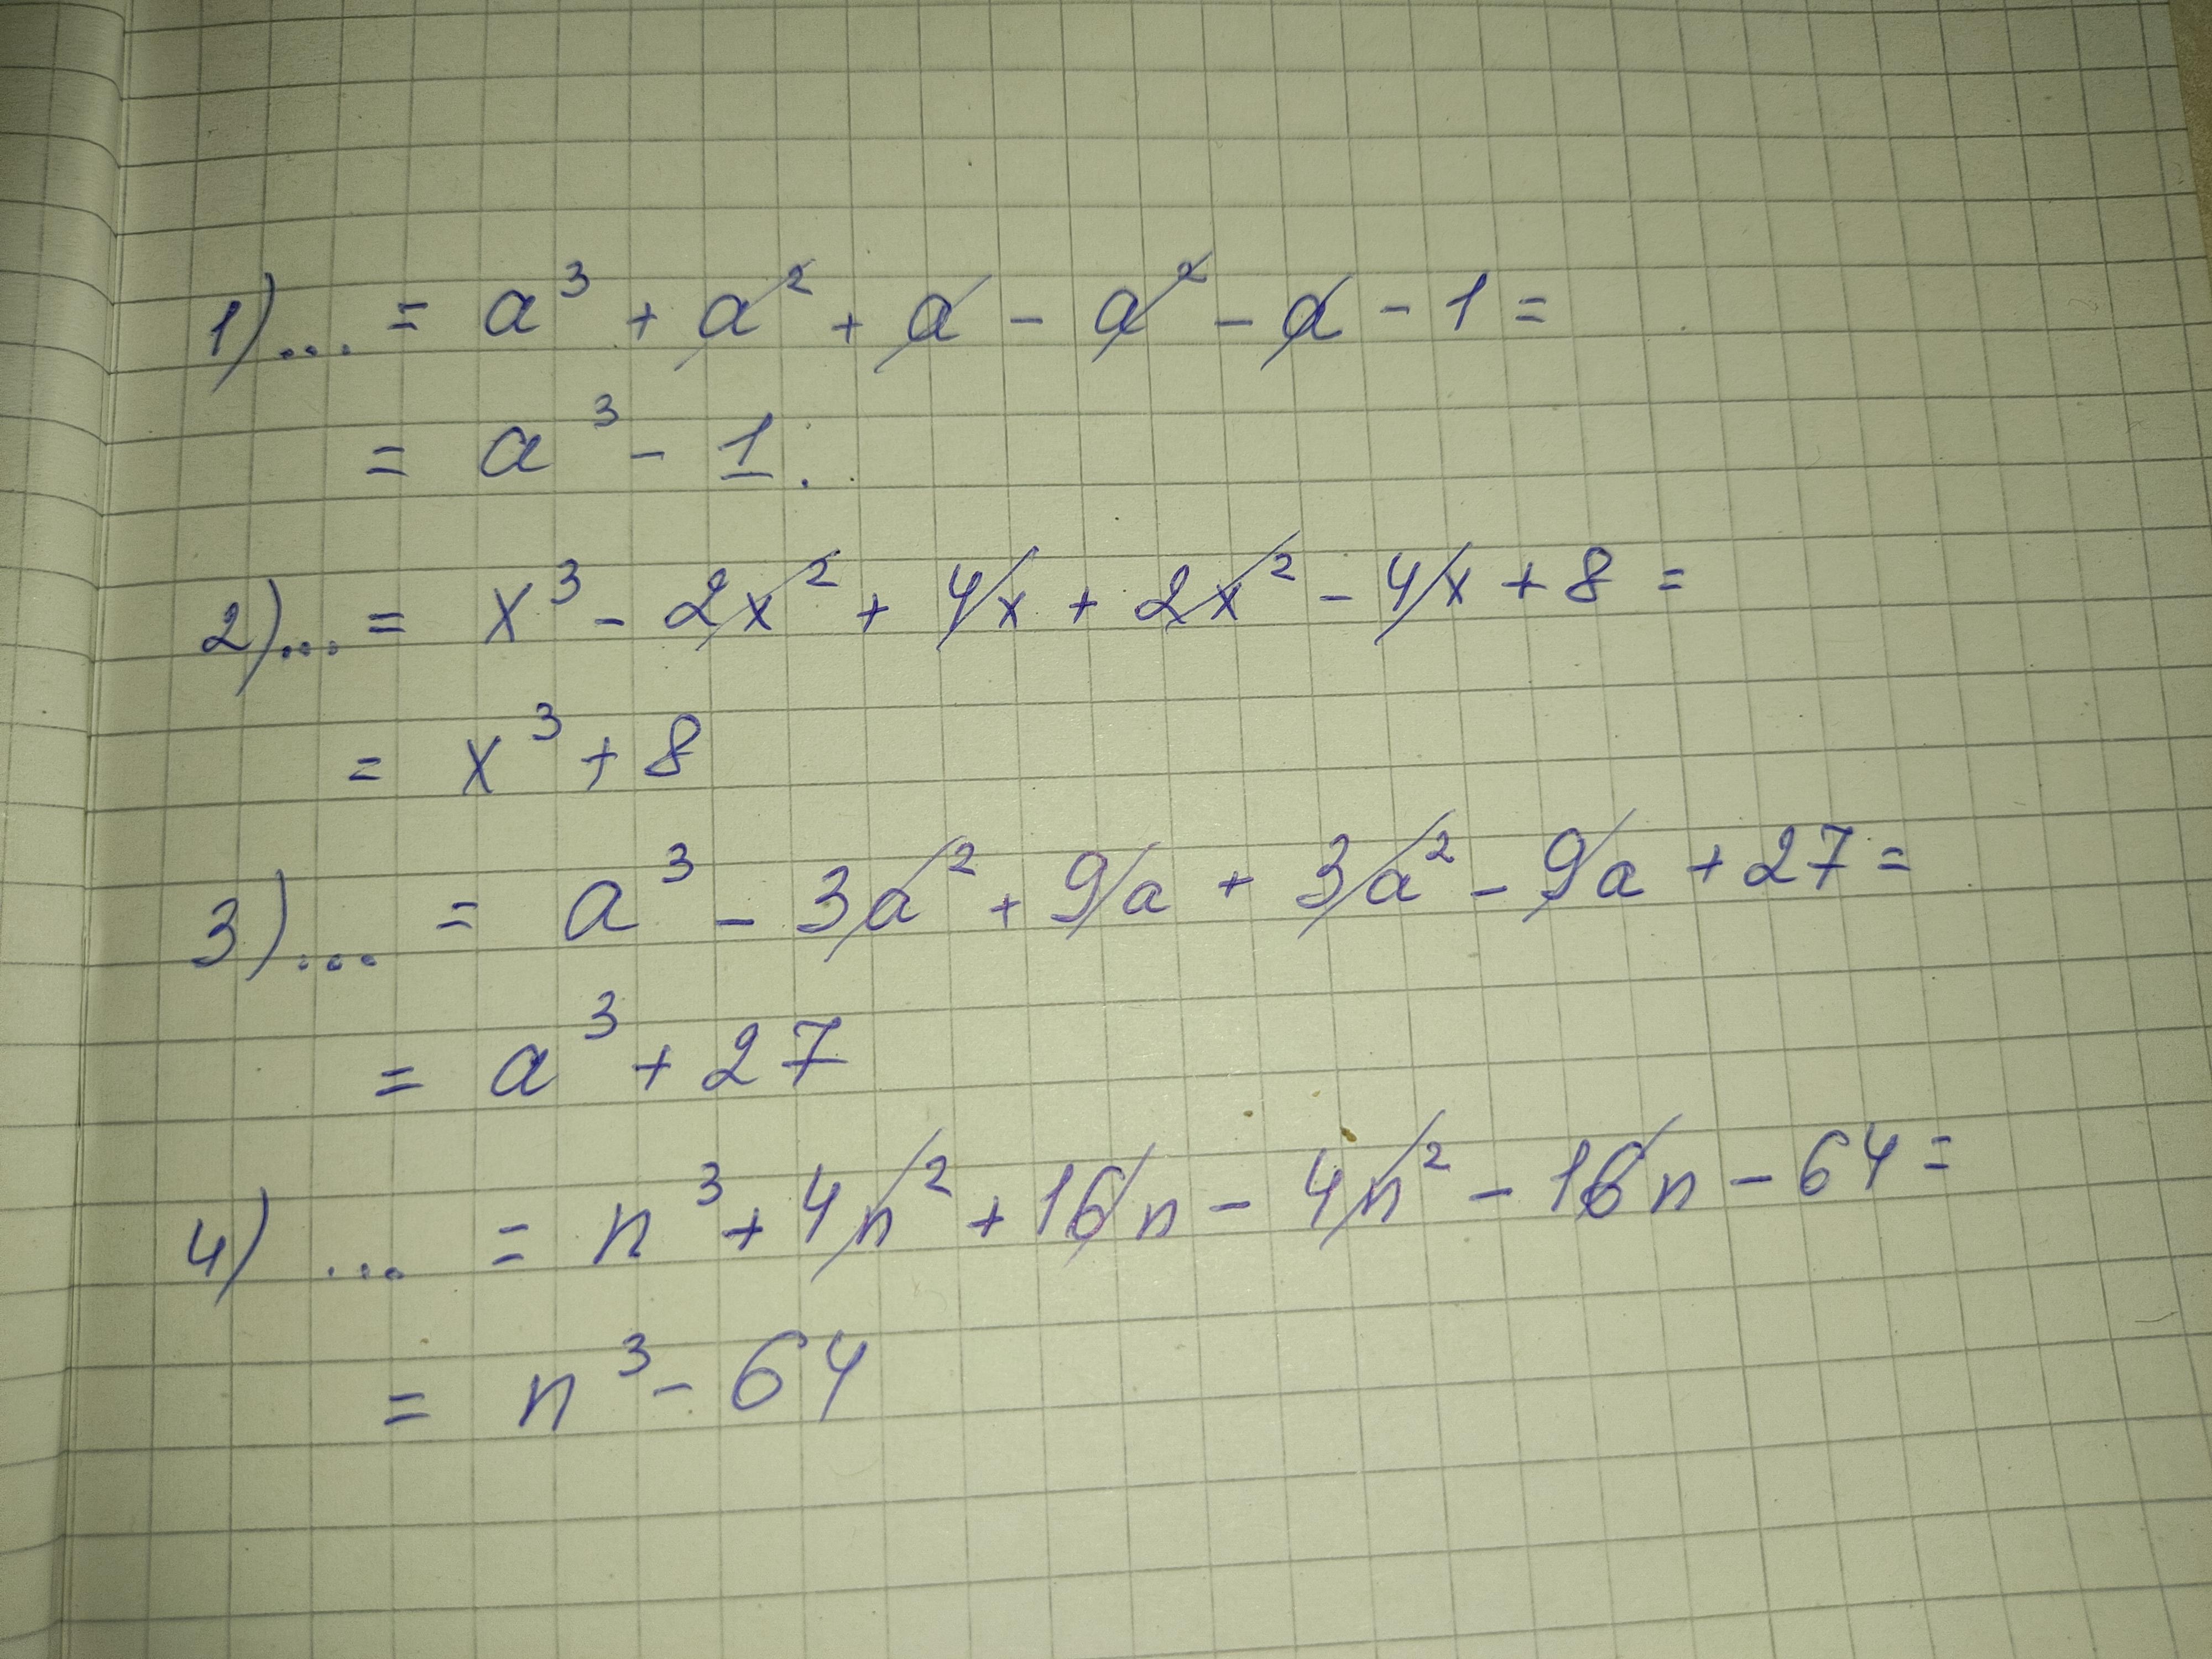 1)... = a³ + a² + a - a² - a - 1 =
= a³ - 1.
2)... = x³ - 2x² + 4x + 2x² - 4x + 8 =
= x³ + 8
3)... = a³ - 3a² + 9a + 3a² - 9a + 27 =
= a³ + 27
4) ... = n³ + 4n² + 16n - 4n² - 16n - 64 =
= n³ - 64